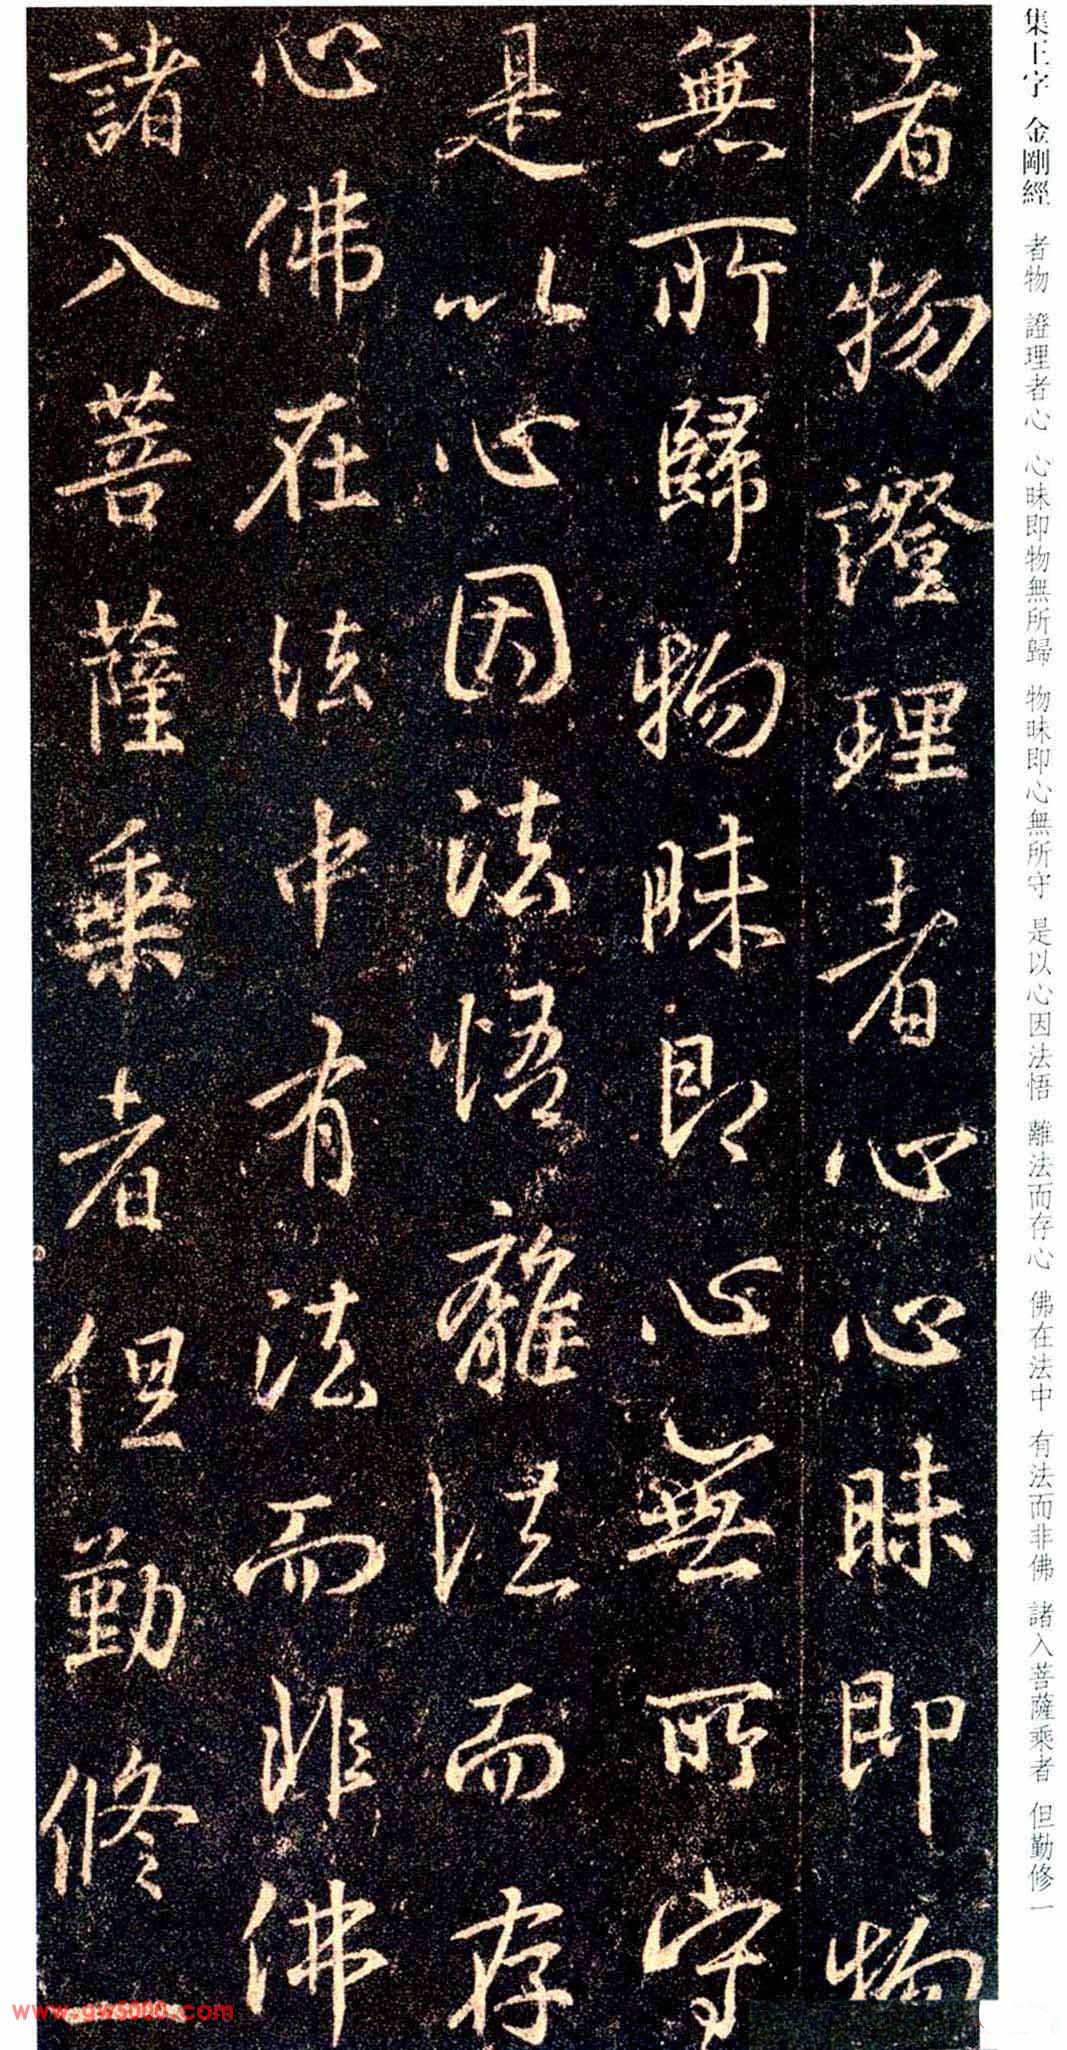 集王字 金剛經 者物 證理者心 心昧即物無所歸 物昧即心無所守 是以心因法悟 離法而存心 佛在法中 有法而非佛 諸入菩薩乘者 但勤修一
者物證理者心心昧即物
無所歸物昧即心無所守
是以心因法悟離法而存
心佛在法中有法而非佛
諸入菩薩乘者但勤修一
www.gw5000.com